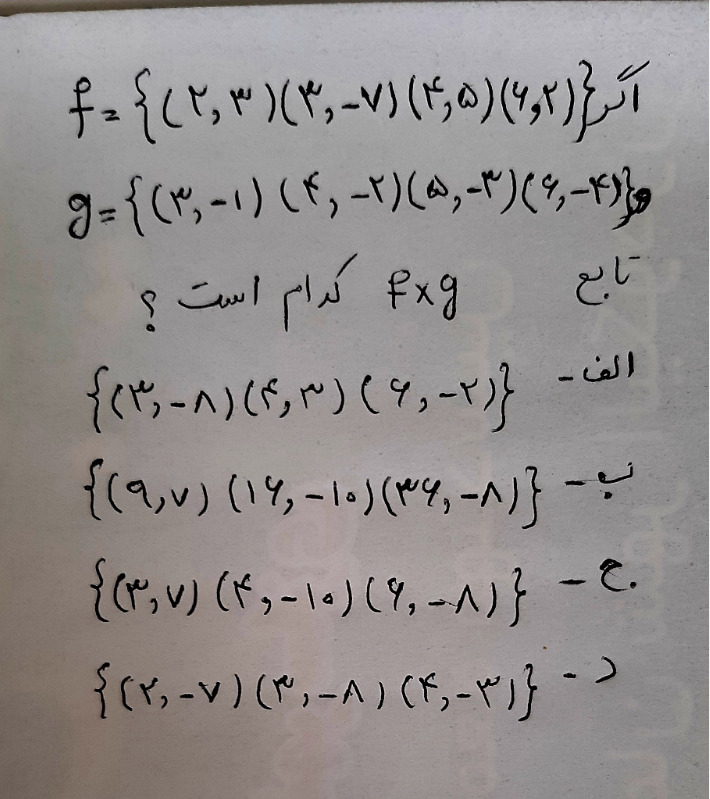 اگر f = {(۲,۳)(۳,-۷)(۴,۵)(۶,۲)}
و g = {(۳,-۱)(۴,-۲)(۵,-۳)(۶,-۴)}
تابع f×g کدام است ؟
الف- {(۳,-۸)(۴,۳)(۶,-۲)}
ب- {(۹,۷)(۱۶,-۱۰)(۳۶,-۸)}
ج- {(۳,۷)(۴,-۱۰)(۶,-۸)}
د- {(۲,-۷)(۳,-۸)(۴,-۳)}